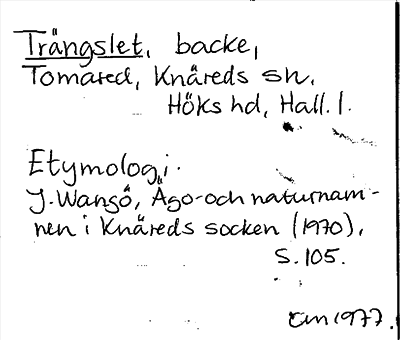 Trängslet, backe,
Tomared, Knäreds sn,
Höks hd, Hall. l.
Etymologi.
J. Wangö, Ägo- och naturnam-
nen i Knäreds socken (1970),
s. 105.
1977.